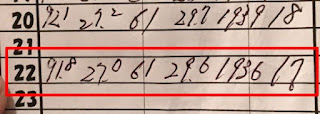 20 92.1 27.2 61 29.7 1939 18
21
22 91.8 27.0 61 29.6 1936 17
23